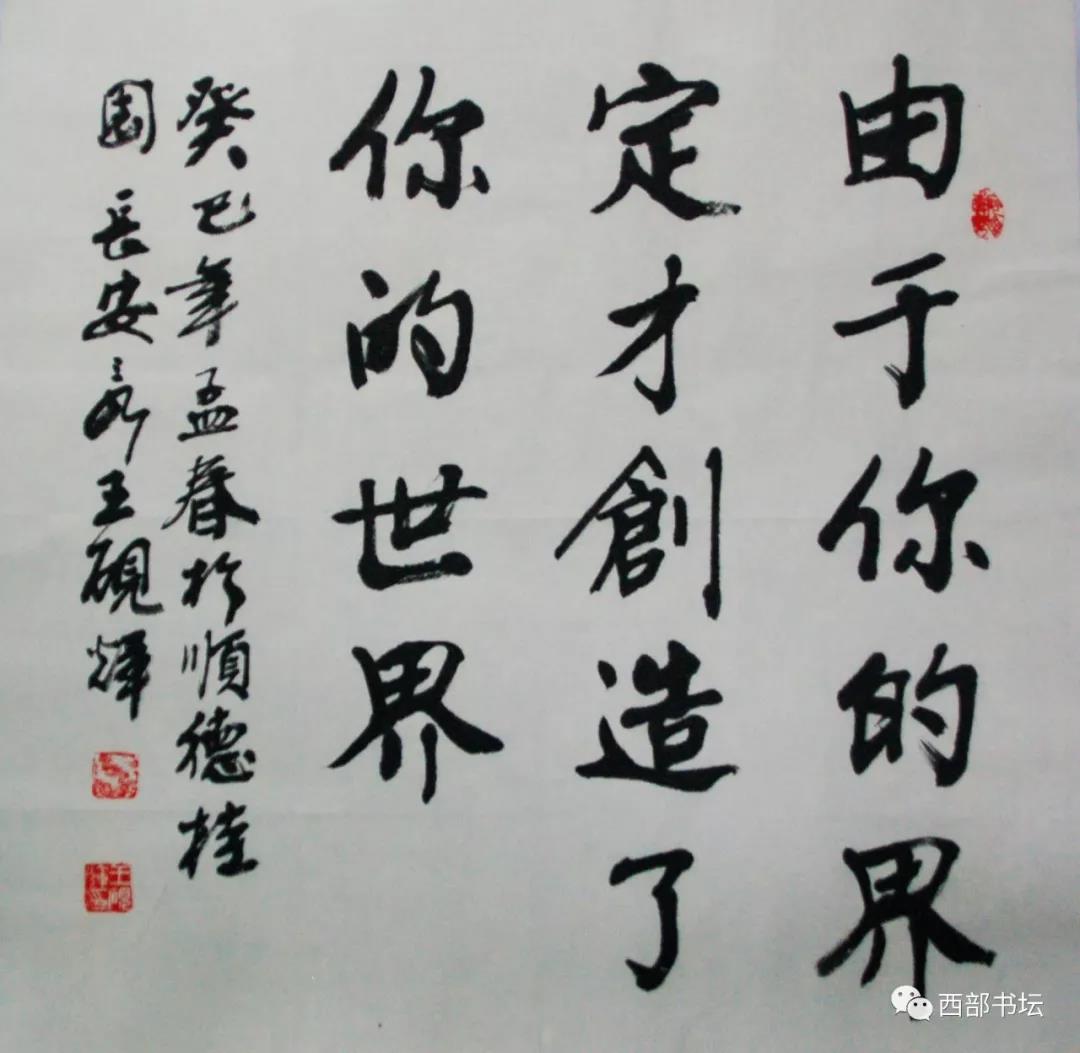 由于你的界
定才創造了
你的世界
癸巳年孟春於順德桂
園 長安 王硯輝
西部书坛